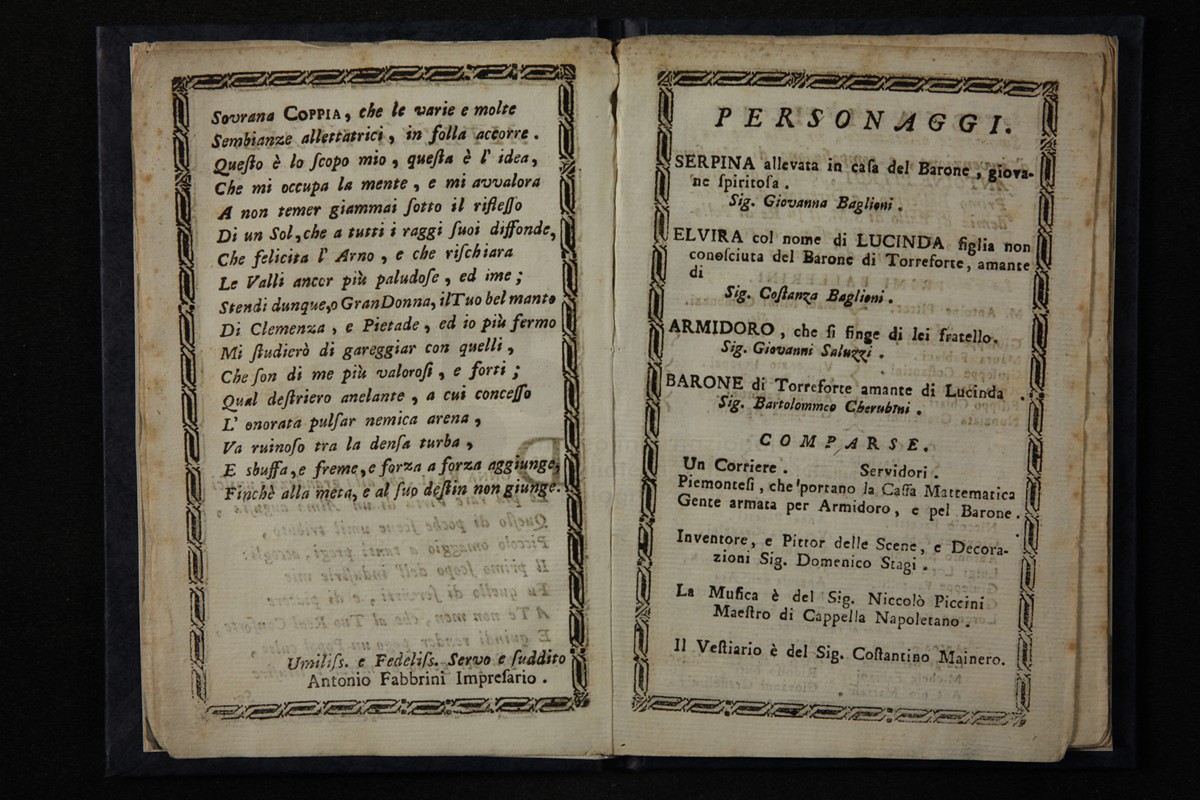 Sovrana COPPIA, che le varie e molte
Sembianze allettatrici, in folla accorre.
Queſto è lo ſcopo mio, queſta è l' idea,
Che mi occupa la mente, e mi avvalora
A non temer giammai ſotto il rifleſſo
Di un Sol, che a tutti i raggi ſuoi diffonde,
Che felicita l' Arno, e che riſchiara
Le Valli ancor più paludoſe, ed ime;
Stendi dunque, o Gran Donna, il Tuo bel manto
Di Clemenza, e Pietade, ed io più fermo
Mi ſtudierò di gareggiar con quelli,
Che ſon di me più valoroſi, e forti;
Qual deſtriero anelante, a cui conceſſo
L' onorata pulſar nemica arena,
Va ruinoſo tra la denſa turba,
E sbuffa, e freme, e forza a forza aggiunge,
Finchè alla meta, e al ſuo deſtin non giunge.
Umiliſs. e Fedeliſs. Servo e ſuddito
Antonio Fabbrini Impreſario.
PERSONAGGI.
SERPINA allevata in caſa del Barone, giova-
ne ſpiritoſa.
Sig. Giovanna Baglioni.
ELVIRA col nome di LUCINDA figlia non
conoſciuta del Barone di Torreforte, amante
di
Sig. Coſtanza Baglioni.
ARMIDORO, che ſi finge di lei fratello.
Sig. Giovanni Saluzzi.
BARONE di Torreforte amante di Lucinda.
Sig. Bartolommeo Cherubini.
COMPARSE.
Un Corriere. Servidori.
Piemonteſi, che portano la Caſſa Mattematica
Gente armata per Armidoro, e pel Barone.
Inventore, e Pittor delle Scene, e Decora-
zioni Sig. Domenico Stagi.
La Muſica è del Sig. Niccolò Piccini
Maeſtro di Cappella Napoletano.
Il Veſtiario è del Sig. Coſtantino Mainero.